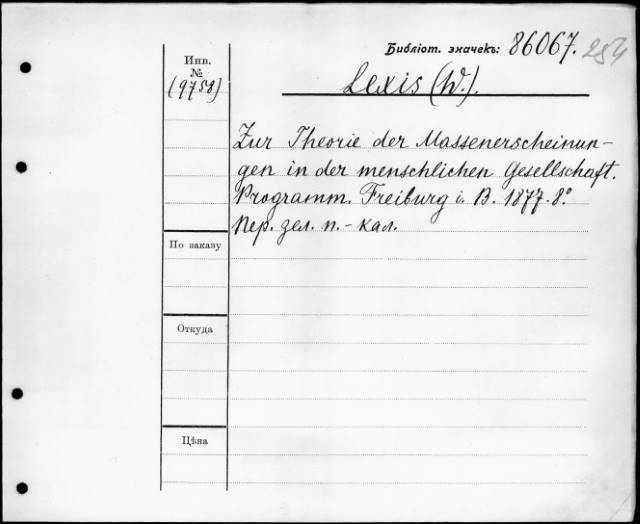 Библіот. значекъ: 86067. 254
Инв.
№
(9758)
Lexis (W.).
Zur Theorie der Massenerscheinun-
gen in der menschlichen Gesellschaft.
Programm. Freiburg i. B. 1877. 8°.
Пер. зел. п.-кал.
По заказу
Откуда
Цѣна